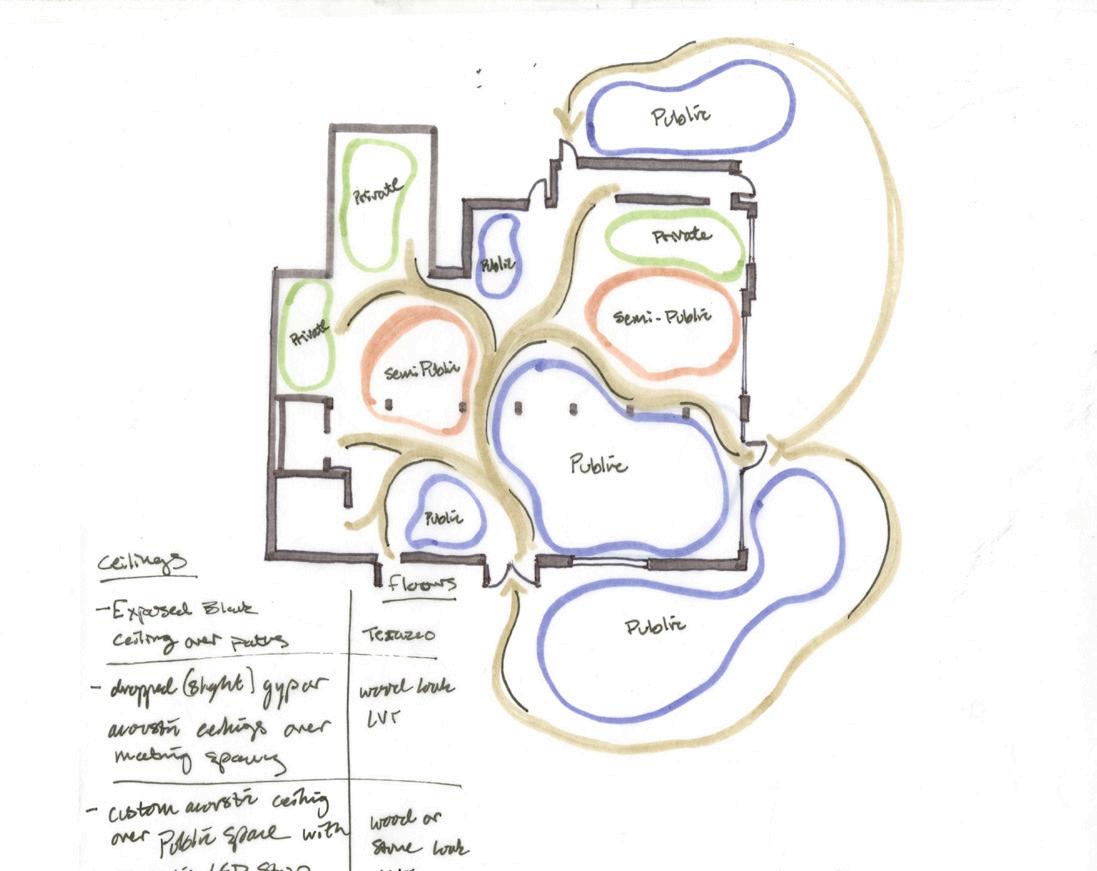 Public
Private
Public
Private
Private
Semi-Public
Semi Public
Public
Public
Public
Ceilings
Floors
- Exposed Black
Ceiling over paths
Terazzo
- dropped (slight) gyp or
acoustic ceilings over
meeting spaces
wood look
LVT
- custom acoustic ceiling
over Public Space with
wood or
Stone look
LED Strip
LVT